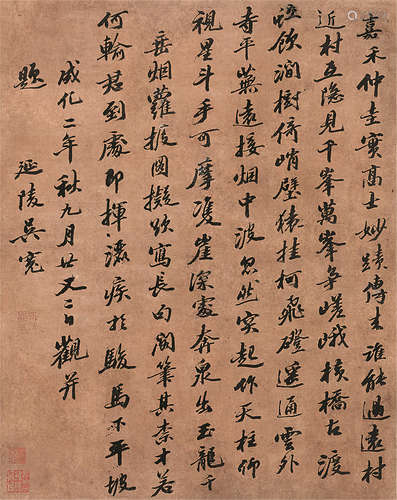 嘉禾仲圭實高士妙蹟傳來誰能過遠村
近村互隱見千峯萬峯爭嵯峨橫橋古渡
飲澗樹倚峭壁猿挂柯飛磴遥通雲外
寺平蕪遠接烟中波忽然突起作天柱仰
視星斗手可摩雙崖深處奔泉出玉龍千
垂烟蘿披圖擬欲寫長句閣筆其柰才若
何輸君到處即揮灑疾於駿馬下平坡
成化二年秋九月廿又二日觀并
題 延陵吳寬